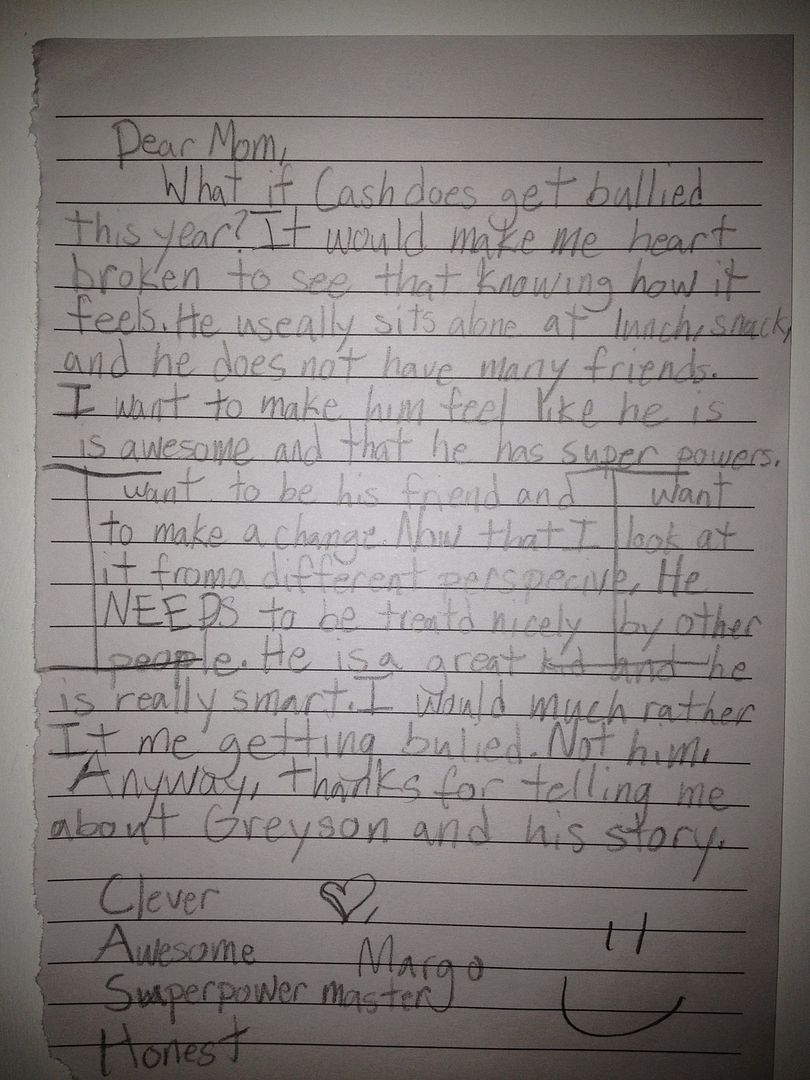 Dear Mom,
What if Cash does get bullied
this year? It would make me heart
broken to see that knowing how it
feels. He useally sits alone at lunch, snack,
and he does not have many friends.
I want to make him feel like he is
is awesome and that he has super powers.
I want to be his friend and I want
to make a change. Now that I look at
it froma different perspecive, He
NEEDS to be treatd nicely by other
people. He is a great kid and he
is really smart. I would much rather
It me getting bulied. Not him.
Anyway, thanks for telling me
about Greyson and his story.
Clever
Awesome Margo
Superpower master
Honest